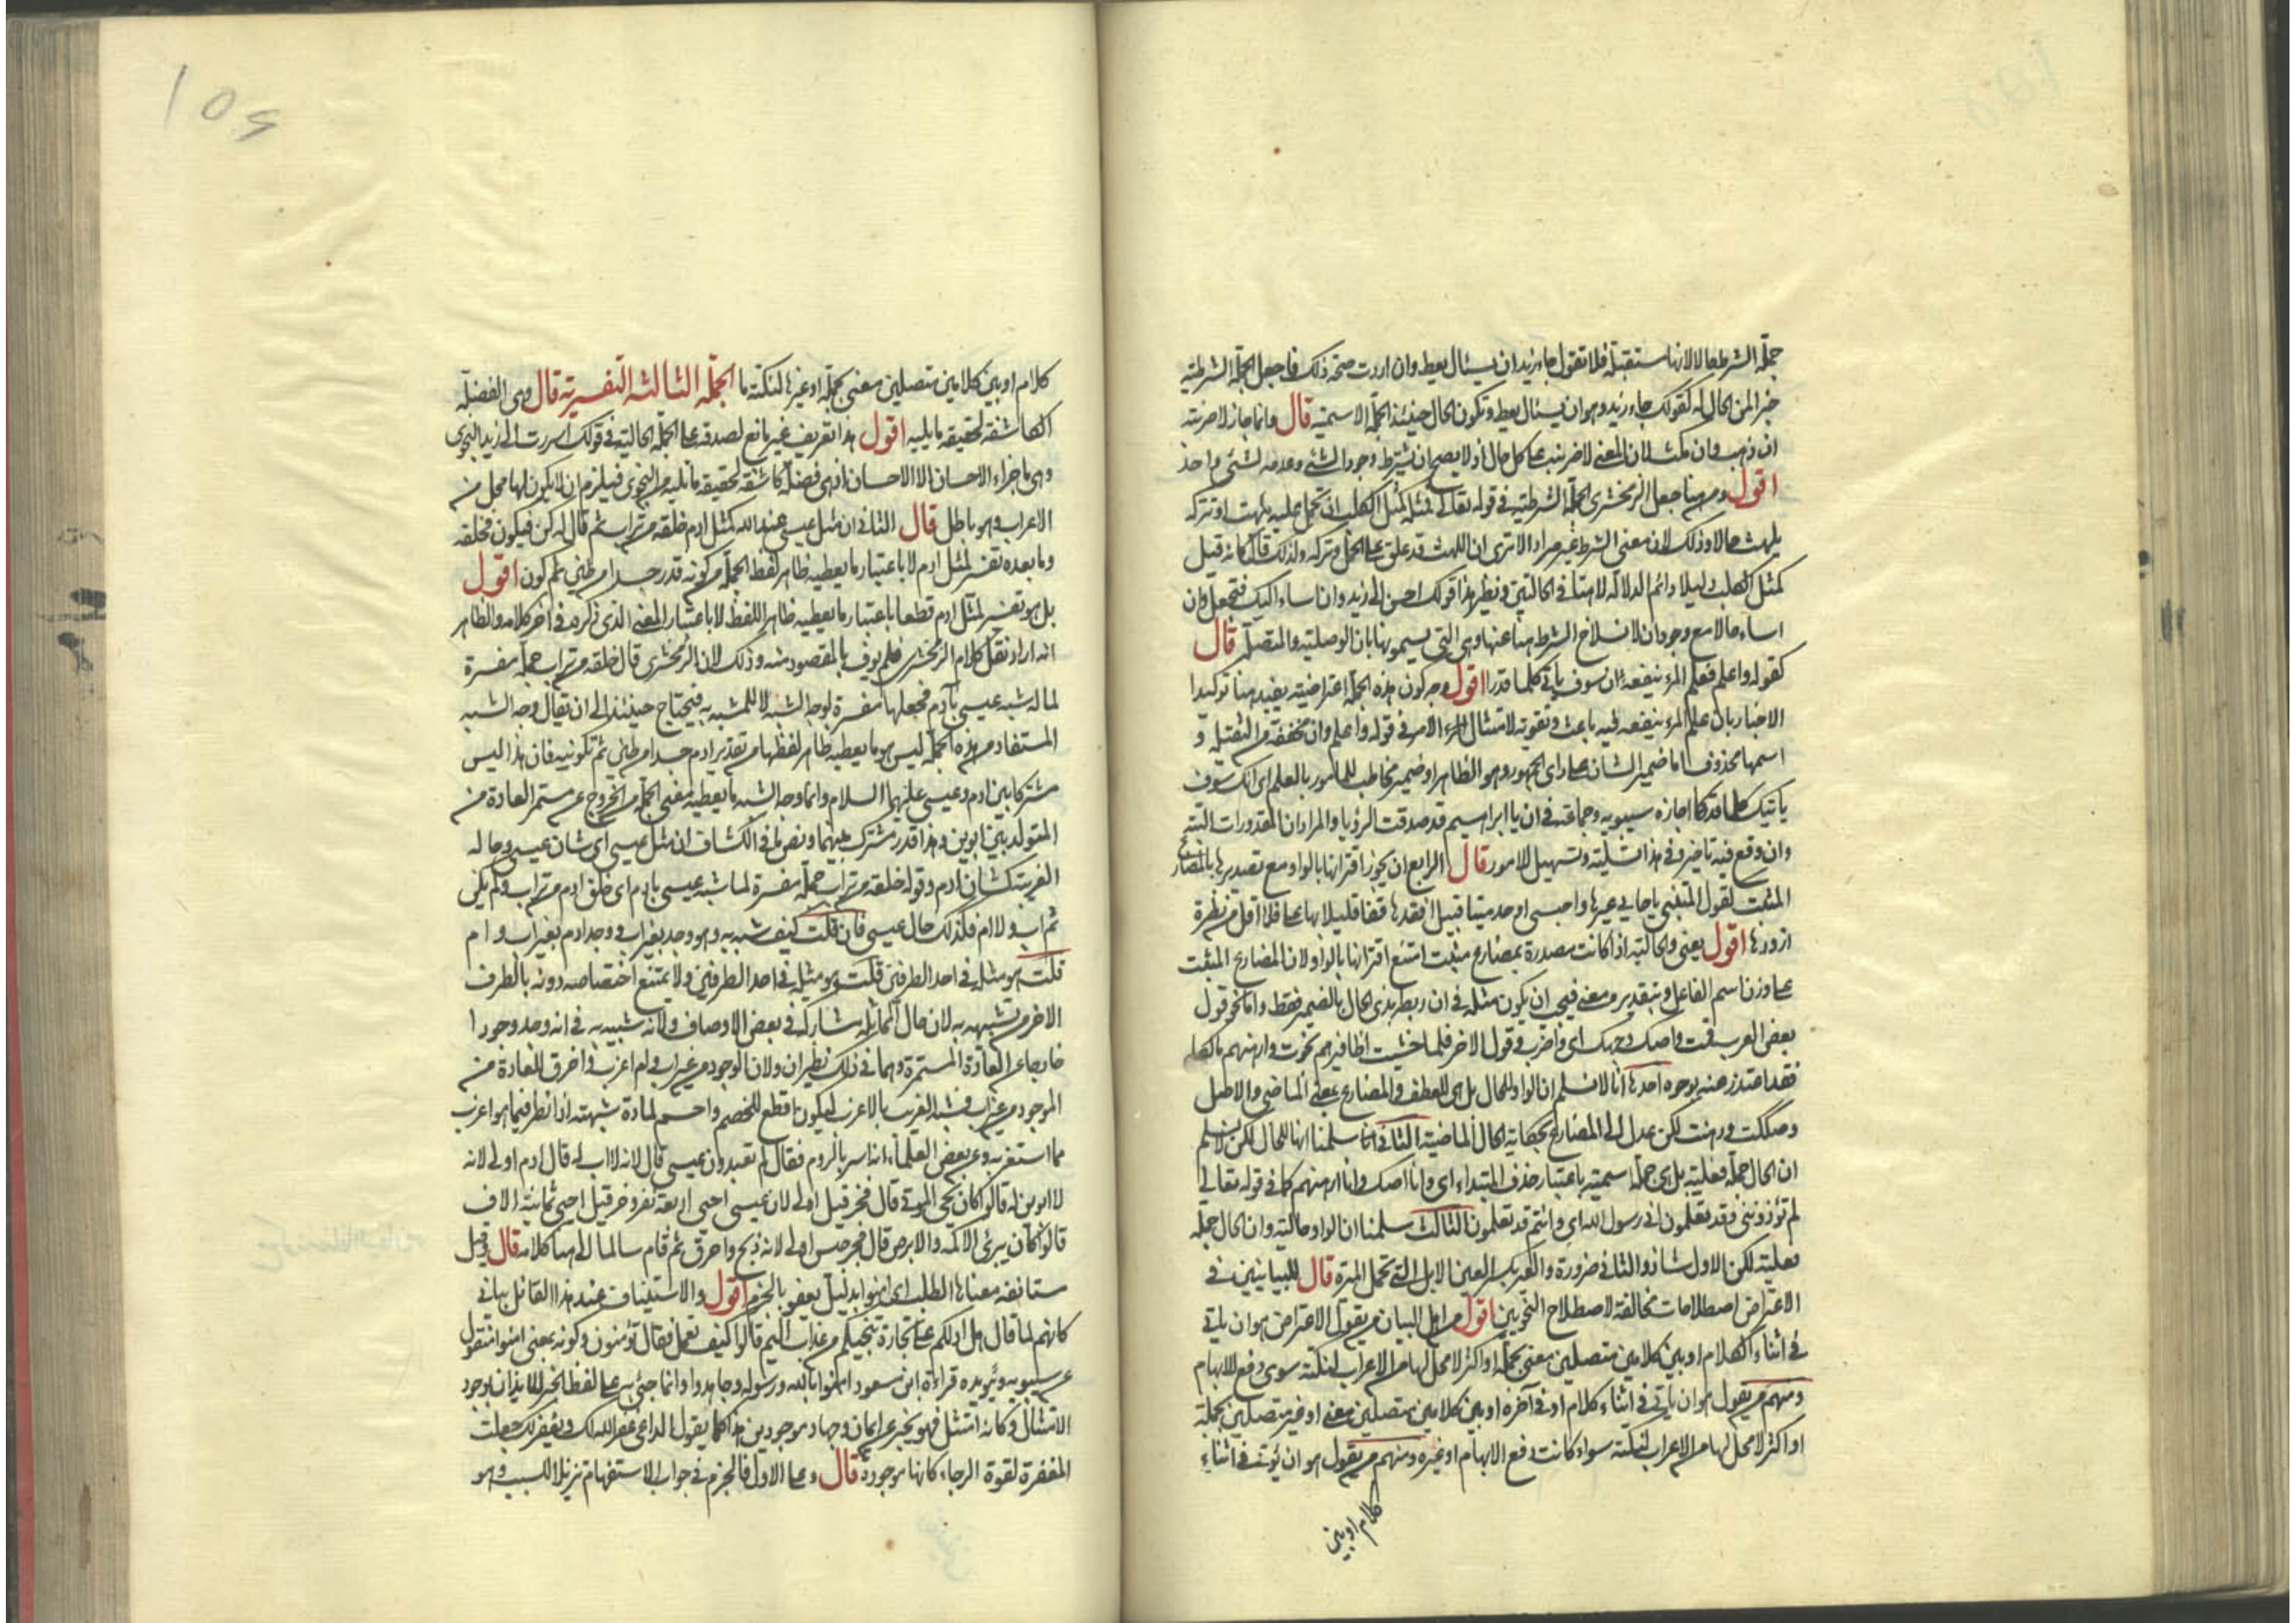 جملة الشرط حالا لانها مستقبلة فلا تقول جاء زيد ان يسئال يعط وان اردت صحة ذلك فاجعل الجملة الشرطية
خبرا لمن الحال له كقولك جاء زيد وهو ان يسئال يعط وتكون الحال حينئذ الجملة الاسمية قال وانما جاز لاضربنه
ان ذهب وان مكث لان المعنى لاضربنه على كل حال اذ لا يصح ان يشترط وجود الشئ وعدمه لشئ واحد
اقول ومن هنا جعل الزمخشرى الجملة الشرطية فى قوله تعالى فمثله كمثل الكلب ان تحمل عليه يلهث او تتركه
يلهث حالا وذلك لان معنى الشرط غير مراد الا ترى ان اللهث قد علق على الحمل وتركه ولذلك قال كانه قيل
كمثل الكلب ذليلا دائم الذلة لاهثا فى الحالتين ونظير هذا قولك احسن الى زيد وان اساء اليك فتجعل وان
اساء حالا مع وجود ان لانسلاخ الشرط هنا عنها وهى التى يسمونها بان الوصلية والمتصلة قال
كقوله واعلم فعلم المرء ينفعه ان سوف ياتى كلما قدرا اقول وجه كون هذه الجملة اعتراضية يفيد هنا توكيدا
الاخبار بان علم المرء ينفعه فيه باعث وتقوية لامتثال الامر فى قوله واعلم وان مخففة من الثقيلة و
اسمها محذوف اما ضمير الشان على راى الجمهور وهو الظاهر او ضمير مخاطب للمامور بالعلم اى انك سوف
ياتيك كلما قدر كما اجازه سيبويه وجماعة فى ان يا ابراهيم قد صدقت الرؤيا والمراد ان المقدورات البتة
وان وقع فيه تاخير وفى هذا تسلية وتسهيل للامور قال الرابع ان يجوز اقترانها بالواو مع تصديرها بالمضارع
المثبت لقول المتنبى يا حاديى عيرها واحسبنى اوجد ميتا قبيل افقدها قفا قليلا بها على فلا اقل من نظرة
ازودها اقول يعنى والحالية اذا كانت مصدرة بمضارع مثبت امتنع اقترانها بالواو لان المضارع المثبت
على وزن اسم الفاعل وبتقديره معنى فيجب ان يكون مثله فى ان ربط بذى الحال بالضمير فقط واما نحو قول
بعض العرب قمت واصك وجهك اى واضرب وقول الاخر فلما خشيت اظافيرهم نجوت وارهنهم مالكا
فقد اعتذر عنه بوجوه احدها انا لا نسلم ان الواو للحال بل هى للعطف والمضارع بمعنى الماضى والاصل
وصككت ورهنت لكن عدل الى المضارع لحكاية الحال الماضية الثانى انا سلمنا انها للحال لكن لا نسلم
ان الحال جملة فعلية بل هى جملة اسمية باعتبار حذف المبتداء اى وانا اصك وانا ارهنهم كما فى قوله تعالى
لم تؤذوننى وقد تعلمون انى رسول الله اى وانتم قد تعلمون الثالث سلمنا ان الواو حالية وان الحال جملة
فعلية لكن الاول شاذ والثانى ضرورة والعير بكسر العين الابل التى تحمل الميرة قال للبيانيين فى
الاعتراض اصطلاحات مخالفة لاصطلاح النحويين اقول من اهل البيان من يقول الاعتراض هو ان يؤتى
فى اثناء الكلام او بين كلامين متصلين معنى بجملة او اكثر لا محل لها من الاعراب لنكتة سوى دفع الابهام
ومنهم من يقول هو ان ياتى فى اثناء كلام او فى آخره او بين كلامين متصلين معنى او غير متصلين بجملة
او اكثر لا محل لها من الاعراب لنكتة سواء كانت دفع الابهام او غيره ومنهم من يقول هو ان يؤتى فى اثناء
كلام او بين
كلام او بين كلامين متصلين معنى بجملة او غيرها لنكتة ما الجملة الثالثة التفسيرية قال وهى الفضلة
الكاشفة لحقيقة ما يليه اقول هذا تعريف غير مانع لصدقه على الجملة الحالية فى قولك اسررت الى زيد النجوى
وهى ما جزاء الاحسان الا الاحسان اذ هى فضلة كاشفة لحقيقة ما تليه من النجوى فيلزم ان لا يكون لها محل من
الاعراب وهو باطل قال الثانى ان مثل عيسى عند الله كمثل ادم خلقه من تراب ثم قال له كن فيكون فخلقه
وما بعده تفسير لمثل ادم لا باعتبار ما يعطيه ظاهر لفظ الجملة من كونه قدر جسدا من طين ثم كون اقول
بل هو تفسير لمثل ادم قطعا باعتبار ما يعطيه ظاهر اللفظ لا باعتبار المعنى الذى ذكره فى اخر كلامه والظاهر
انه اراد نقل كلام الزمخشرى فلم يوف بالمقصود منه وذلك لان الزمخشرى قال خلقه من تراب جملة مفسرة
لما له شبه عيسى بآدم فجعلها مفسرة لوجه الشبه لا للمشبه به فيحتاج حينئذ الى ان يقال وجه الشبه
المستفاد من هذه الجملة ليس هو ما يعطيه ظاهر لفظها من تقدير ادم جسدا من طين ثم تكوينه فان هذا ليس
مشتركا بين ادم وعيسى عليهما السلام وانما وجه الشبه ما يعطيه معنى الجملة من الخروج عن مستمر العادة من
التولد بين ابوين وهذا قدر مشترك بينهما ونص ما فى الكشاف ان مثل عيسى اى شان عيسى وحاله
الغريبة كشان ادم وقوله خلقه من تراب جملة مفسرة لما شبه عيسى بادم اى خلق ادم من تراب ولم يكن
ثم اب ولا ام فكذلك حال عيسى فان قلت كيف شبه به وهو وجد بغير اب ووجد ادم بغير اب وام
قلت هو مثله فى احد الطرفين قلت هو مثله فى احد الطرفين ولا يمتنع اختصاصه دونه بالطرف
الاخر من تشبيهه به لان حال المماثلة مشاركة فى بعض الاوصاف ولانه شبيه به فى انه وجد وجودا
خارجا عن العادة المستمرة وهما فى ذلك نظيران ولان الوجود من غير اب وام اغرب واخرق للعادة من
الموجود من غير اب فشبه الغريب بالاغرب ليكون اقطع للخصم واحسم لمادة شبهته اذا نظر فيما هو اغرب
مما استغربه وعن بعض العلماء انه اسر بالروم فقال لم تعبدون عيسى قال لانه لا اب له قال ادم اولى لانه
لا ابوين له قالوا كان يحى الموتى قال فحزقيل اولى لان عيسى احيى اربعة نفر وحزقيل احيى ثمانية الاف
قالوا كان يبرئ الاكمه والابرص قال فجرجيس اولى لانه ذبح واحرق ثم قام سالما الى هنا كلامه قال وقيل
مستانفة معناها الطلب اى امنوا بدليل يغفر بالجزم اقول والاستيناف عند هذا القائل بيانى
كانهم لما قال هل ادلكم على تجارة تنجيكم من عذاب اليم قالوا كيف نعمل فقال تؤمنون وكونه بمعنى امنوا منقول
عن سيبويه ويؤيده قراءة ابن مسعود امنوا بالله ورسوله وجاهدوا وانما جئ به على لفظ الخبر للايذان بوجود
الامتثال وكانه امتثل فهو يخبر عن ايمان وجهاد موجودين هذا كما يقول الداعى غفر الله لك ويغفر لك جعلت
المغفرة لقوة الرجاء كانها موجودة قال وعلى الاول فالجزم فى جواب الاستفهام تنزيلا للسبب وهو